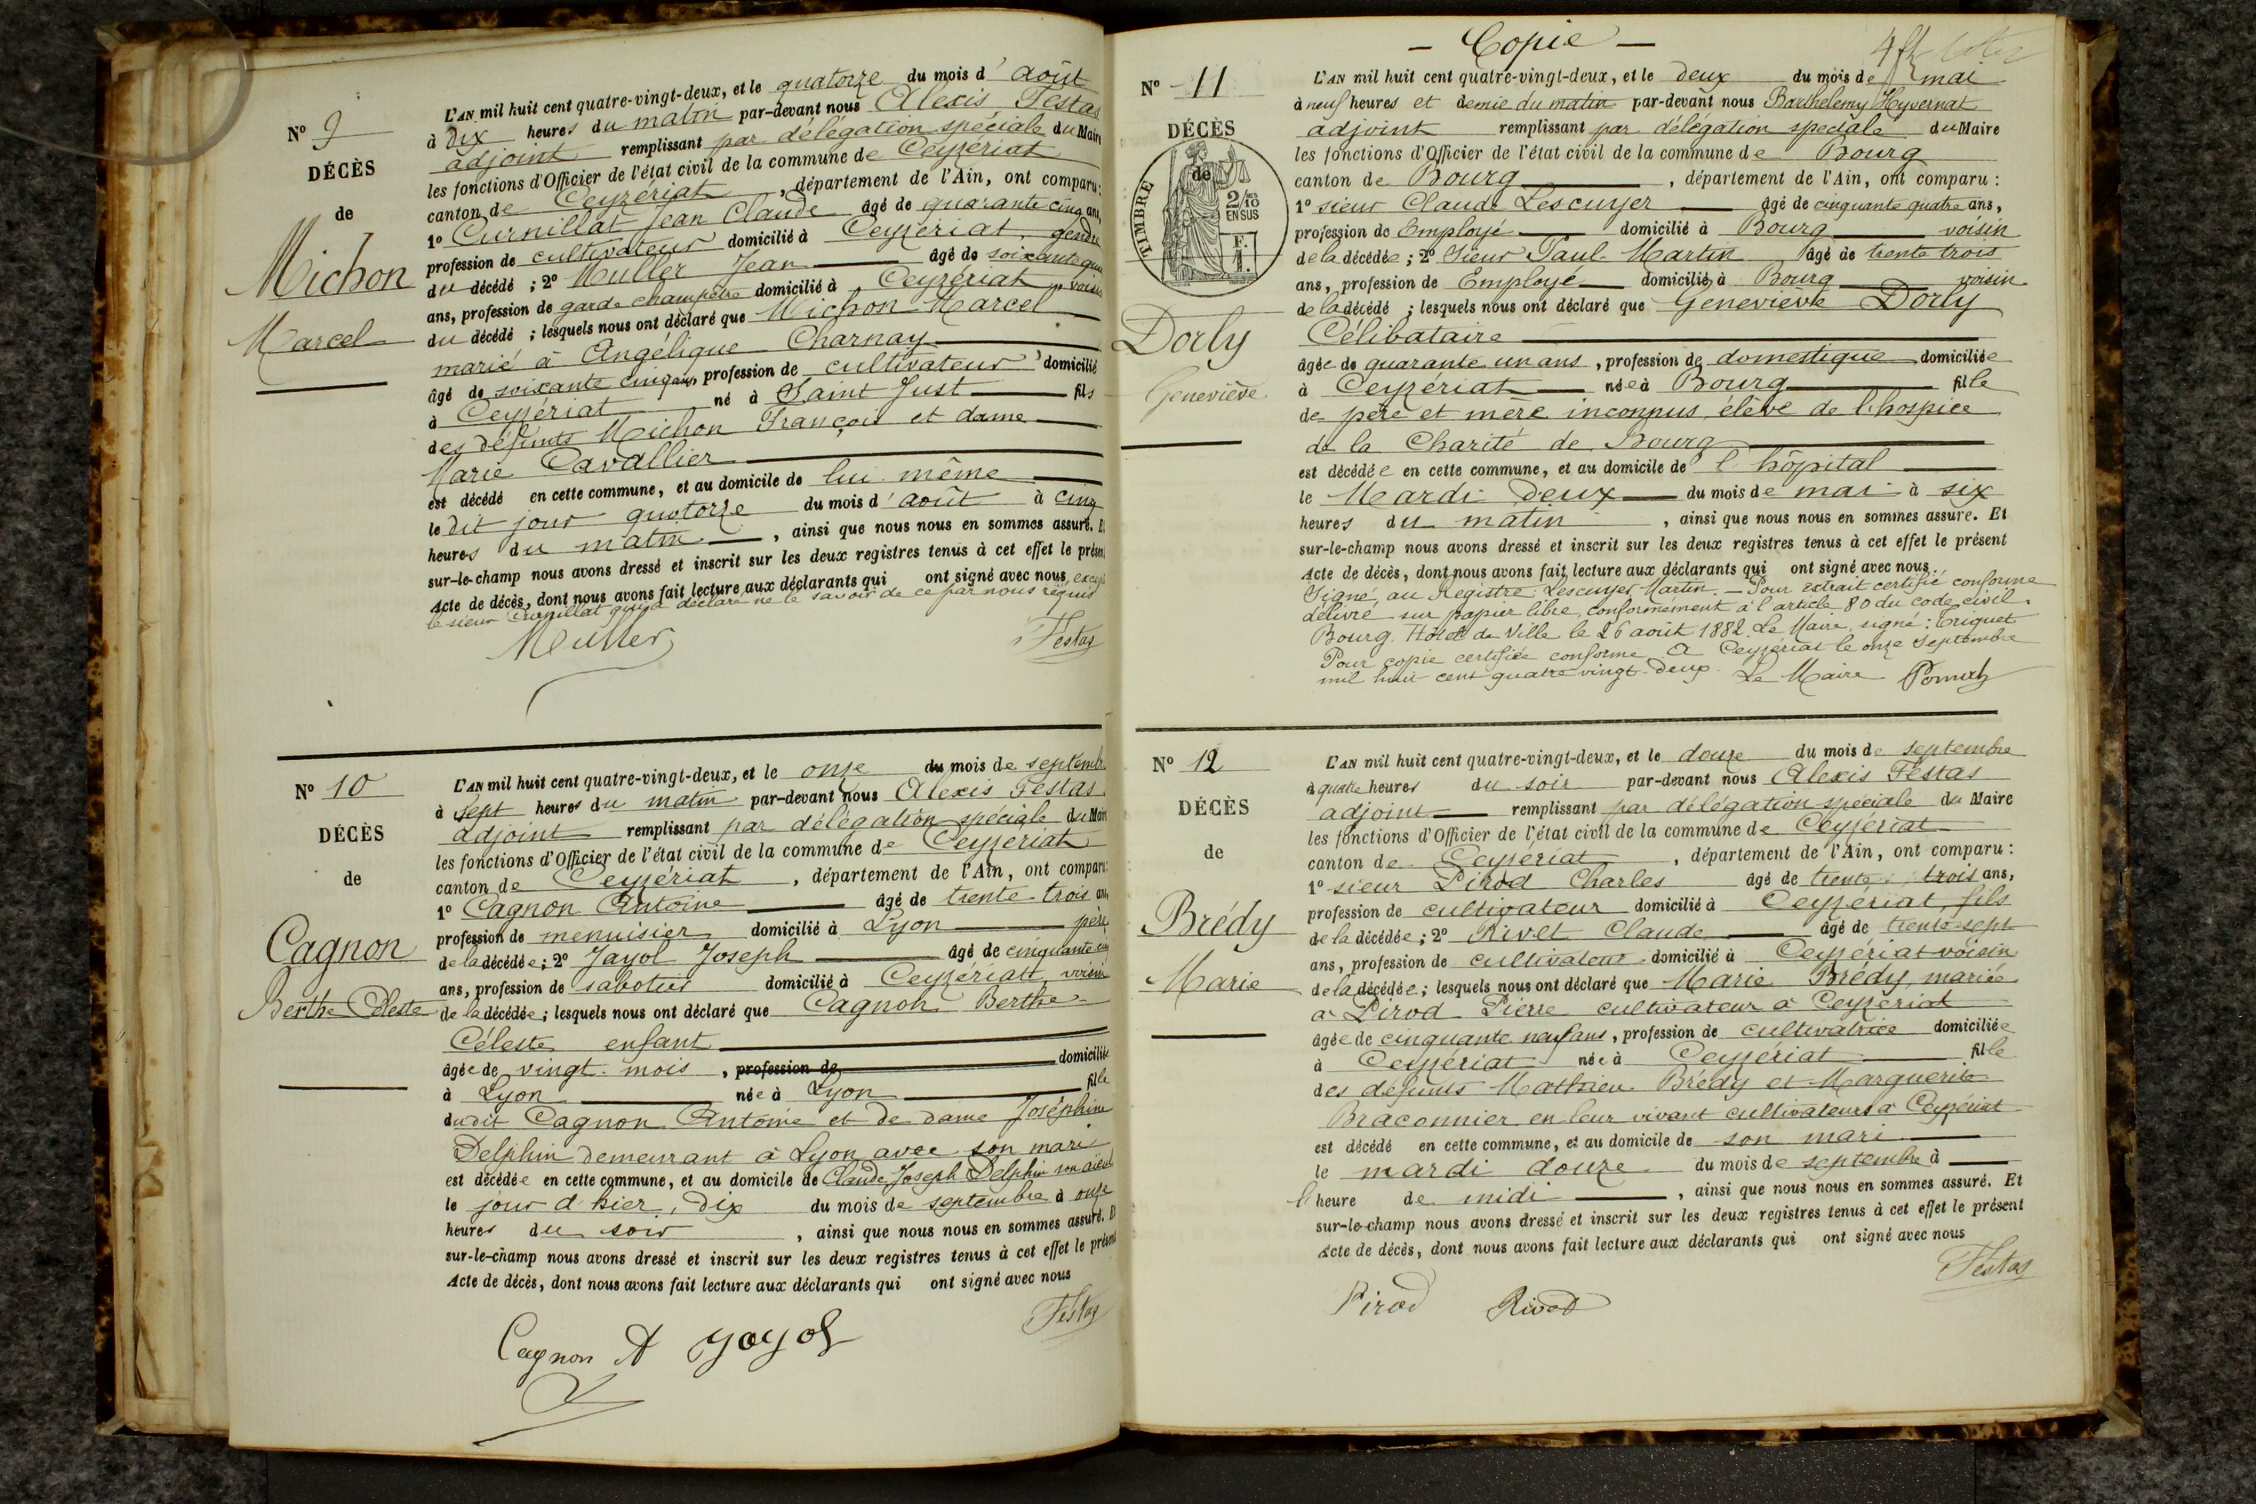 N° 9
DÉCÈS
de
Michon
Marcel
L'AN mil huit cent quatre-vingt-deux, et le quatorze du mois d'août
à dix heures du matin par-devant nous Alexis Festas
adjoint remplissant par délégation spéciale du Maire
les fonctions d'Officier de l'état civil de la commune de Ceyzériat
canton de Ceyzériat, département de l'Ain, ont comparu :
1° Curnillat Jean Claude âgé de quarante cinq ans,
profession de cultivateur domicilié à Ceyzériat, gendre
du décédé ; 2° Muller Jean âgé de soixante
ans, profession de garde champêtre domicilié à Ceyzériat, voisin
du décédé ; lesquels nous ont déclaré que Michon Marcel
marié à Angélique Charnay
âgé de soixante cinq ans, profession de cultivateur domicilié
à Ceyzériat né à Saint Just fils
des défunts Michon François et dame
Marie Cavallier
est décédé en cette commune, et au domicile de lui même
le dit jour quatorze du mois d'août à cinq
heures du matin, ainsi que nous nous en sommes assuré. Et
sur-le-champ nous avons dressé et inscrit sur les deux registres tenus à cet effet le présent
Acte de décès, dont nous avons fait lecture aux déclarants qui ont signé avec nous, excepté
le sieur Curnillat qui a déclaré ne le savoir de ce par nous requis
Muller Festas
N° 10
DÉCÈS
de
Cagnon
Berthe Céleste
L'AN mil huit cent quatre-vingt-deux, et le onze du mois de septembre
à sept heures du matin par-devant nous Alexis Festas
adjoint remplissant par délégation spéciale du Maire
les fonctions d'Officier de l'état civil de la commune de Ceyzériat
canton de Ceyzériat, département de l'Ain, ont comparu :
1° Cagnon Antoine âgé de trente-trois ans,
profession de menuisier domicilié à Lyon père
de la décédée ; 2° Jayol Joseph âgé de cinquante cinq
ans, profession de sabotier domicilié à Ceyzériat voisin
de la décédée ; lesquels nous ont déclaré que Cagnon Berthe
Céleste enfant
âgée de vingt mois, profession de domiciliée
à Lyon née à Lyon fille
du dit Cagnon Antoine et de dame Joséphine
Delphin demeurant à Lyon avec son mari
est décédée en cette commune, et au domicile de Claude Joseph Delphin son aïeul
le jour d'hier, dix du mois de septembre à onze
heures du soir, ainsi que nous nous en sommes assuré. Et
sur-le-champ nous avons dressé et inscrit sur les deux registres tenus à cet effet le présent
Acte de décès, dont nous avons fait lecture aux déclarants qui ont signé avec nous
Festas
Cagnon A Jayol
- Copie -
N° 11
DÉCÈS
de
TIMBRE
2/10 EN SUS
Dorly
Geneviève
L'AN mil huit cent quatre-vingt-deux, et le deux du mois de mai
à neuf heures et demie du matin par-devant nous Barthelemy Hyvernat
adjoint remplissant par délégation spéciale du Maire
les fonctions d'Officier de l'état civil de la commune de Bourg
canton de Bourg, département de l'Ain, ont comparu :
1° sieur Claude Lescuyer âgé de cinquante quatre ans,
profession de Employé domicilié à Bourg voisin
de la décédée ; 2° Sieur Paul Martin âgé de trente trois
ans, profession de Employé domicilié à Bourg voisin
de la décédé ; lesquels nous ont déclaré que Geneviève Dorly
Célibataire
âgée de quarante un ans, profession de domestique domiciliée
à Ceyzériat née à Bourg fille
de père et mère inconnus, élève de l'hospice
de la Charité de Bourg
est décédée en cette commune, et au domicile de l'hôpital
le Mardi deux du mois de mai à six
heures du matin, ainsi que nous nous en sommes assuré. Et
sur-le-champ nous avons dressé et inscrit sur les deux registres tenus à cet effet le présent
Acte de décès, dont nous avons fait lecture aux déclarants qui ont signé avec nous.
Signé au Registre : Lescuyer, Martin. — Pour extrait certifié conforme
délivré sur papier libre, conformément à l'article 80 du code civil.
Bourg, Hôtel de Ville le 26 août 1882. Le Maire signé :
Pour copie certifiée conforme. A Ceyzériat le onze Septembre
mil huit cent quatre vingt-deux. Le Maire
N° 12
DÉCÈS
de
Brédy
Marie
L'AN mil huit cent quatre-vingt-deux, et le douze du mois de septembre
à quatre heures du soir par-devant nous Alexis Festas
adjoint remplissant par délégation spéciale du Maire
les fonctions d'Officier de l'état civil de la commune de Ceyzériat
canton de Ceyzériat, département de l'Ain, ont comparu :
1° sieur Pirod Charles âgé de trente trois ans,
profession de cultivateur domicilié à Ceyzériat, fils
de la décédée ; 2° Rivet Claude âgé de trente-sept
ans, profession de cultivateur domicilié à Ceyzériat voisin
de la décédée ; lesquels nous ont déclaré que Marie Brédy, mariée
à Pirod Pierre cultivateur à Ceyzériat
âgée de cinquante neuf ans, profession de cultivatrice domiciliée
à Ceyzériat née à Ceyzériat fille
des défunts Mathieu Brédy et Marguerite
Braconnier en leur vivant cultivateurs à Ceyzériat
est décédé en cette commune, et au domicile de son mari
le mardi douze du mois de septembre à
l'heure de midi, ainsi que nous nous en sommes assuré. Et
sur-le-champ nous avons dressé et inscrit sur les deux registres tenus à cet effet le présent
Acte de décès, dont nous avons fait lecture aux déclarants qui ont signé avec nous
Festas
Pirod Rivet